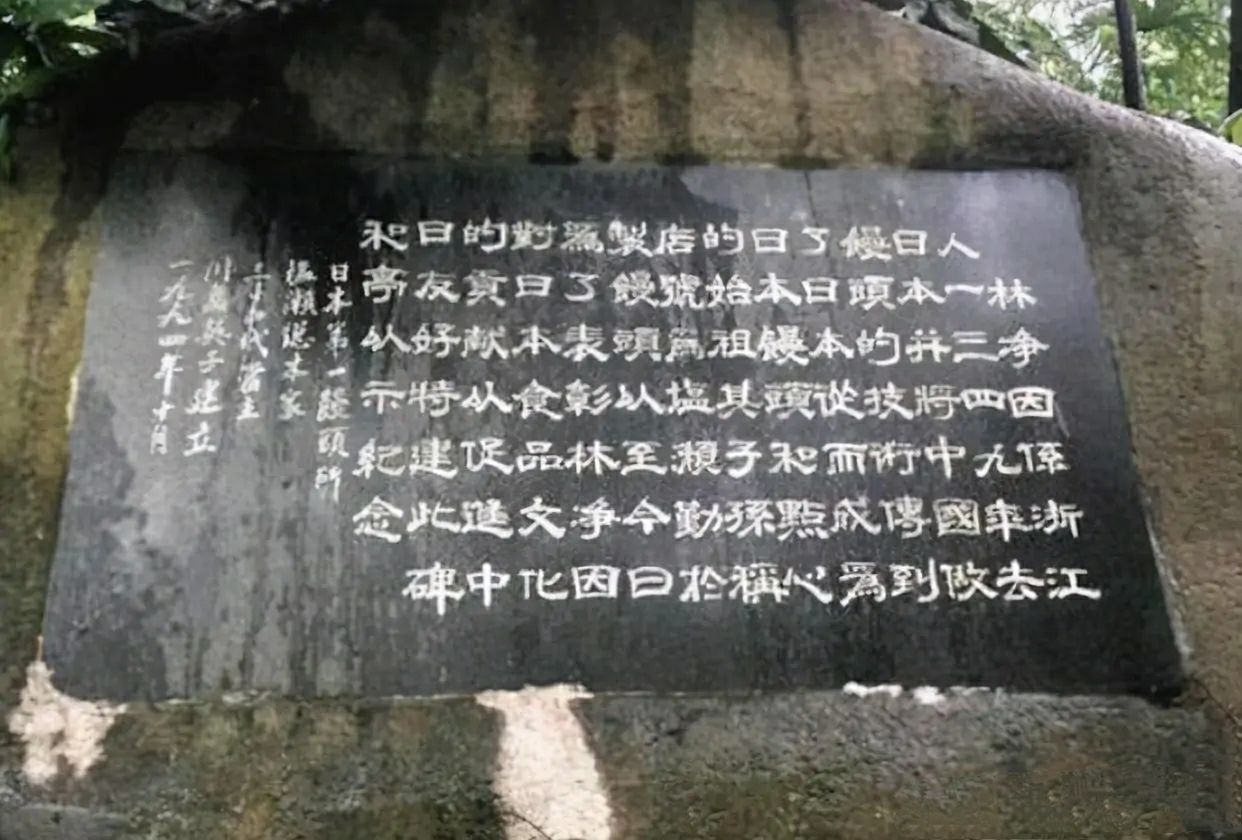 林净因係浙江
人一三四九年去
日本并將中國做
饅頭的技術傳到
了日本從而成為
日本饅頭和點心
的始祖其子孫稱
店號為塩瀬勤於
製饅頭以至今日
為了表彰林净因
對日本食品文化
的貢献以促進中
日友好特建此碑
和亭以示紀念
日本第一饅頭所
塩瀬総本家
三十四代當主
川島英子建立
一九九四年十月